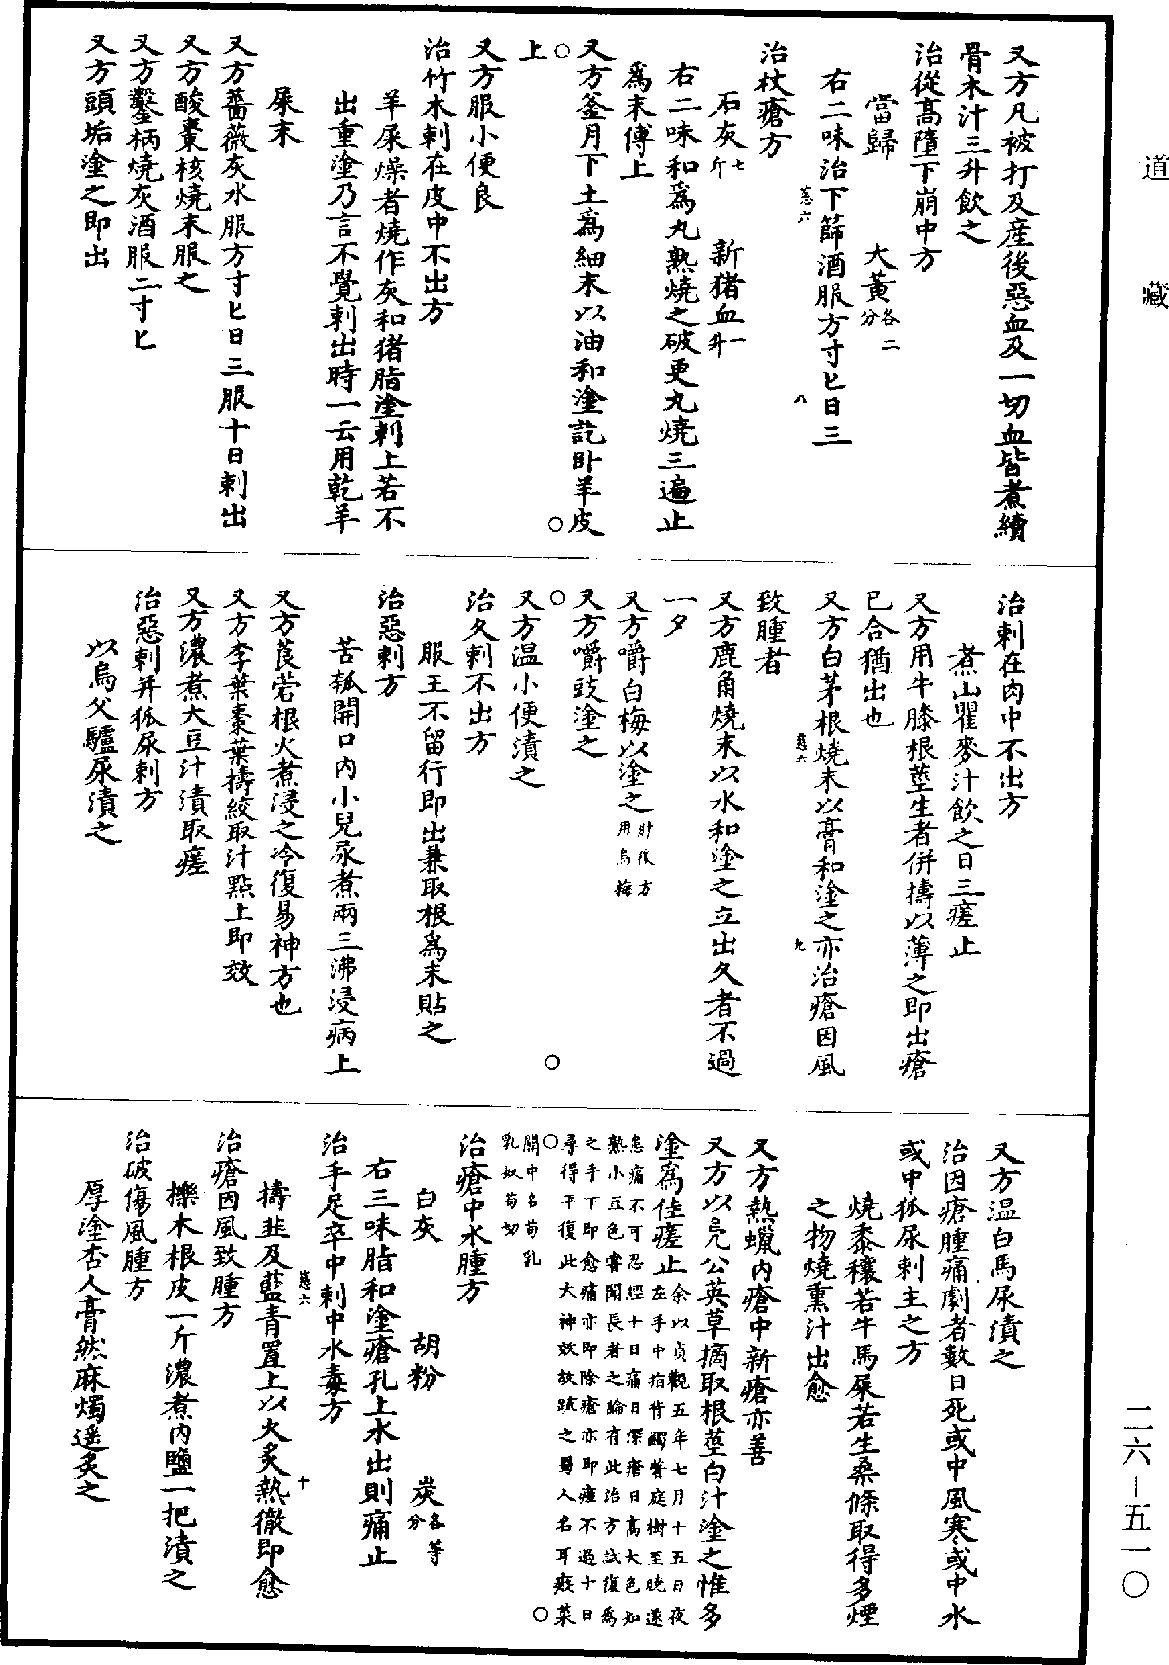 道藏
又方凡被打及産後惡血及一切血皆煮續
骨木汁三升飲之
治從高墮下崩中方
當歸　大黃各二分
右二味治下篩酒服方寸匕日三
慈六　八
治杖瘡方
石灰七斤　新猪血一升
右二味和爲丸熟燒之破更丸燒三遍止
爲末傅上
又方釜月下土爲細末以油和塗訖卧羊皮
上
又方服小便良
治竹木刺在皮中不出方
羊屎燥者燒作灰和猪脂塗刺上若不
出重塗乃言不覺刺出時一云用乾羊
屎末
又方薔薇灰水服方寸匕日三服十日刺出
又方酸棗核燒末服之
又方鑿柄燒灰酒服二寸匕
又方頭垢塗之即出
治刺在肉中不出方
煮山瞿麥汁飲之日三瘥止
又方用牛膝根莖生者併擣以薄之即出瘡
已合猶出也
又方白茅根燒末以膏和塗之亦治瘡因風
慈六　九
致腫者
又方鹿角燒末以水和塗之立出久者不過
一夕
又方嚼白梅以塗之肘後方用烏梅
又方嚼豉塗之
又方温小便漬之
治久刺不出方
服王不留行即出兼取根爲末貼之
治惡刺方
苦瓠開口内小兒尿煮兩三沸浸病上
又方莨菪根火煮浸之冷復易神方也
又方李葉棗葉擣絞取汁點上即效
又方濃煮大豆汁漬取瘥
治惡刺并狐尿刺方
以烏父驢尿漬之
又方温白馬尿漬之
治因瘡腫痛劇者數日死或中風寒或中水
或中狐尿刺主之方
燒黍穰若牛馬屎若生桑條取得多煙
之物燒熏汁出愈
又方熱蠟内瘡中新瘡亦善
又方以鳧公英草摘取根莖白汁塗之惟多
塗爲佳瘥止余以貞觀五年七月十五日夜
左手中指背觸著庭樹至曉遂
患痛不可忍經十日痛日深瘡日高大色如
熟小豆色嘗聞長者之論有此治方試復爲
之手下即愈痛亦即除瘡亦即瘥不過十日
尋得平復此大神效故疏之蜀人名耳瘢菜
關中名苟乳
乳奴苟切
治瘡中水腫方
白灰　胡粉　炭各等分
右三味脂和塗瘡孔上水出則痛止
治手足卒中刺中水毒方
擣韭及藍青置上以火炙熱徹即愈
慈六　十
治瘡因風致腫方
櫟木根皮一斤濃煮内鹽一把漬之
治破傷風腫方
厚塗杏人膏然麻燭遥炙之
二六－五一〇